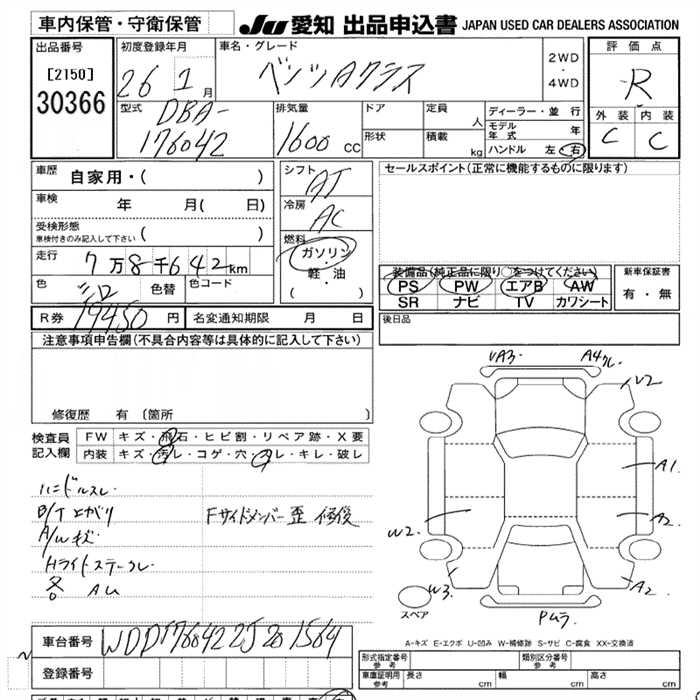 車内保管・守衛保管
JU 愛知 出品申込書 JAPAN USED CAR DEALERS ASSOCIATION
出品番号
[2150]
30366
初度登録年月
26 1 月
車名・グレード
ベンツAクラス
2WD
・
4WD
評価点
R
外装 内装
C C
型式
DBA-
176042
排気量
1600 cc
ドア
形状
定員 人
積載 kg
ディーラー・並行
モデル年式 年
ハンドル 左・右
車歴
自家用・( )
車検
年 月( 日)
受検形態
車検付きのみ記入して下さい ( )
走行
7万8千642km
色
シロ
色替
色コード
R券 19450 円
名変通知期限 月 日
シフト
AT
冷房
AC
燃料
ガソリン
・
軽・油
( )
セールスポイント(正常に機能するものに限ります)
装備品(純正品に限り○をつけてください)
PS PW エアB AW
SR ナビ TV カワシート
新車保証書
有・無
後日品
注意事項申告欄(不具合内容等は具体的に記入して下さい)
修復歴 有 〔箇所
検査員
記入欄
FW キズ・飛石・ヒビ割・リペア跡・X要
内装 キズ・汚レ・コゲ・穴・スレ・キレ・破レ
ハンドルスレ
B/T上がり
Fサイドメンバー歪 修後
A/Wキズ
各 AU
VA3
V2
A1
A2
W2
W3
A2
スペア
Pムラ
A-キズ E-エクボ U-凹み W-補修跡 S-サビ C-腐食 XX-交換済
車台番号
WDD1760422J201564
登録番号
形式指定番号
参考
類別区分番号
参考
車庫証明用
参考
長さ cm
幅 cm
高さ cm